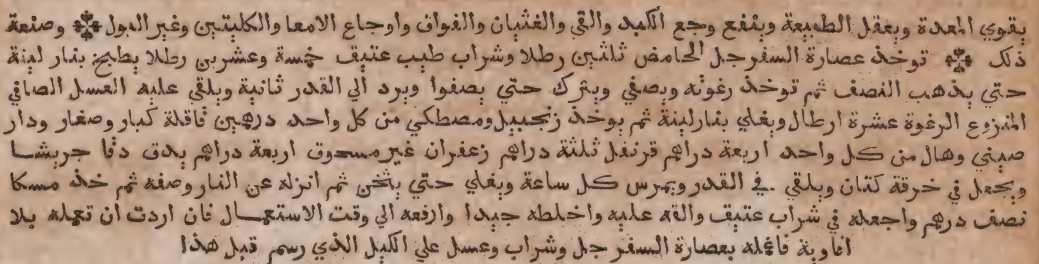 يقوي المعدة ويعقل الطبيعة وينفع وجع الكبد والقي والغثيان والفواق واوجاع الامعا والكليتين وغير البول ۞ وصنعة
ذلك ۞ توخذ عصارة السفرجل الحامض ثلثين رطلا وشراب طيب عتيق خمسة وعشرين رطلا يطبخ بنار لينة
حتي يذهب النصف ثم توخذ رغوته ويصفي ويترك حتي يصفوا ويرد الي القدر ثانية ويلقي عليه العسل الصافي
المنزوع الرغوة عشرة ارطال ويغلي بنار لينة ثم يوخذ زنجبيل ومصطكي من كل واحد درهمين قاقلة كبار وصغار ودار
صيني وهال من كل واحد اربعة دراهم قرنفل ثلثة دراهم زعفران غير مسحوق اربعة دراهم يدق دقا جريشا
ويجعل في خرقة كتان ويلقي في القدر ويمرس كل ساعة ويغلي حتي يثخن ثم انزله عن النار وصفه ثم خذ مسكا
نصف درهم واجعله في شراب عتيق والقه عليه واخلطه جيدا وارفعه الي وقت الاستعمال فان اردت ان تعمله بلا
افاوية فاعمله بعصارة السفرجل وشراب وعسل علي الكيل الذي رسم قبل هذا